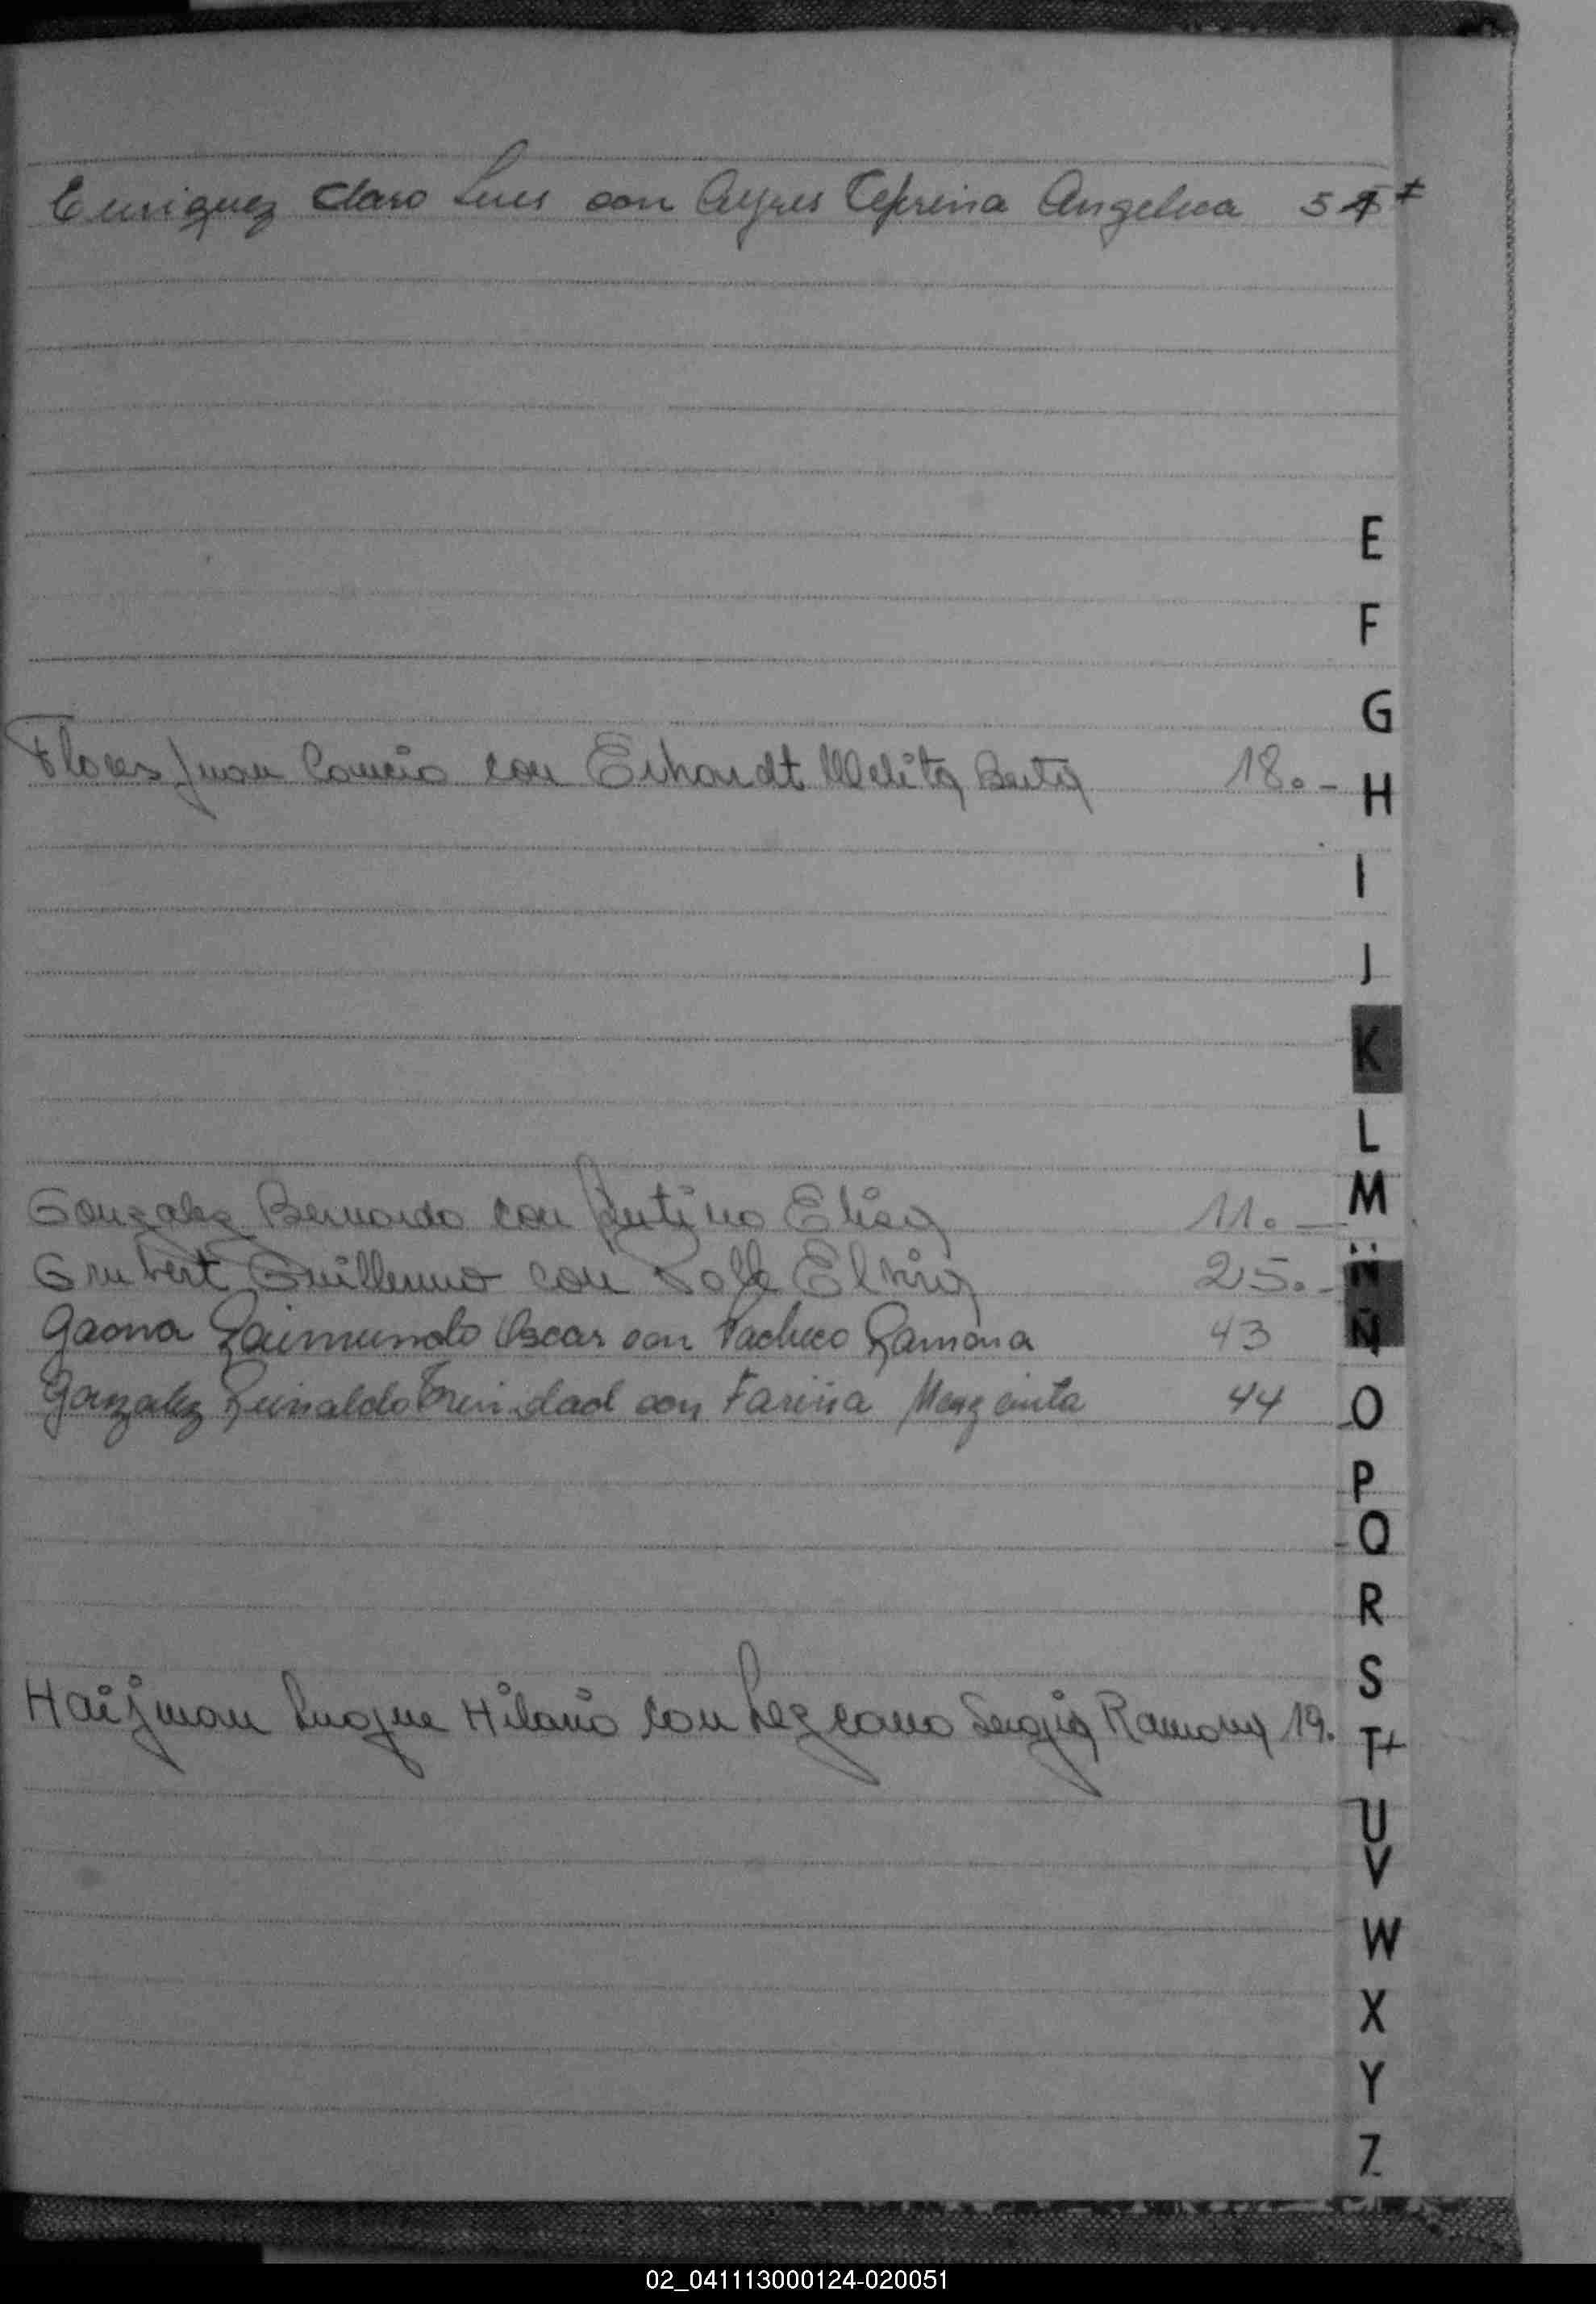 Enriquez Claro Luis con Ayres Ceferina Angelica 54
E
F
G
Flores Juan con Erhardt Melita Berta 18.-
H
I
J
K
L
M
Gonzalez Bernardo con Elisa 11.-
N
Grubert Guillermo con Elvira 25.-
Gaona Raimundo Oscar con Pacheco Ramona 43
Ñ
Gonzalez Reinaldo Trinidad con Fariña 44
O
P
Q
R
S
Haijman Luque Hilario con Lezcano Sergia Ramona 19.
T
U
V
W
X
Y
Z
02_041113000124-020051